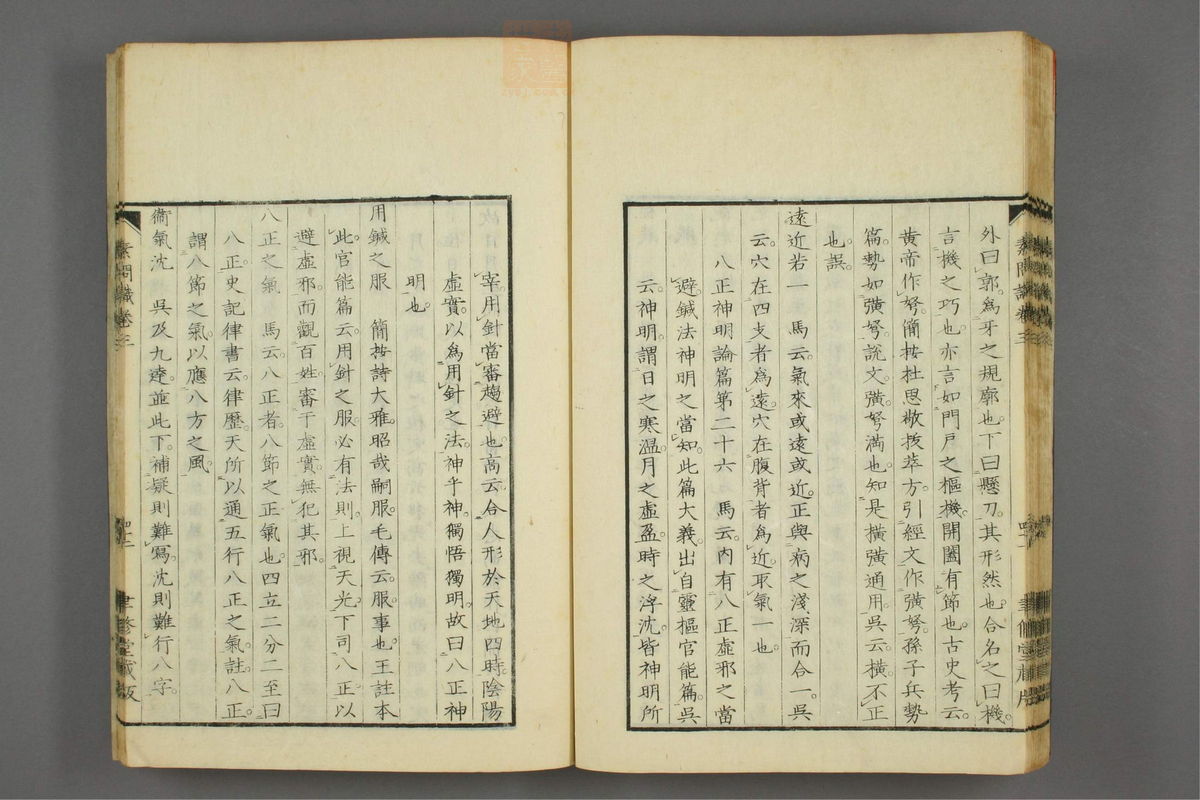 外曰郭爲牙之規廓也下曰懸刀其形然也合名之曰機
言機之巧也亦言如門戸之樞機開闔有節也古史考云
黄帝作弩簡按杜思敬拔萃方引經文作彍弩孫子兵勢
篇勢如彍弩説文彍弩滿也知是横彍通用吳云横不正
也誤
遠近若一 馬云氣來或遠或近正與病之淺深而合一吳
云穴在四支者爲遠穴在腹背者爲近取氣一也
八正神明論篇第二十六 馬云内有八正虛邪之當
避鍼法神明之當知此篇大義出自靈樞官能篇吳
云神明謂日之寒温月之虛盈時之浮沈皆神明所
宰用針當審趨避也高云合人形於天地四時陰陽
虛實以爲用針之法神乎神獨悟獨明故曰八正神
明也
用鍼之服 簡按詩大雅昭哉嗣服毛傳云服事也王註本
此官能篇云用針之服必有法則上視天光下司八正以
避虛邪而觀百姓審于虛實無犯其邪
八正之氣 馬云八正者八節之正氣也四立二分二至曰
八正史記律書云律歷天所以通五行八正之氣註八正
謂八節之氣以應八方之風
衞氣沈 吳及九達並此下補凝則難寫沈則難行八字
素問識卷三
四十二
聿修堂藏版